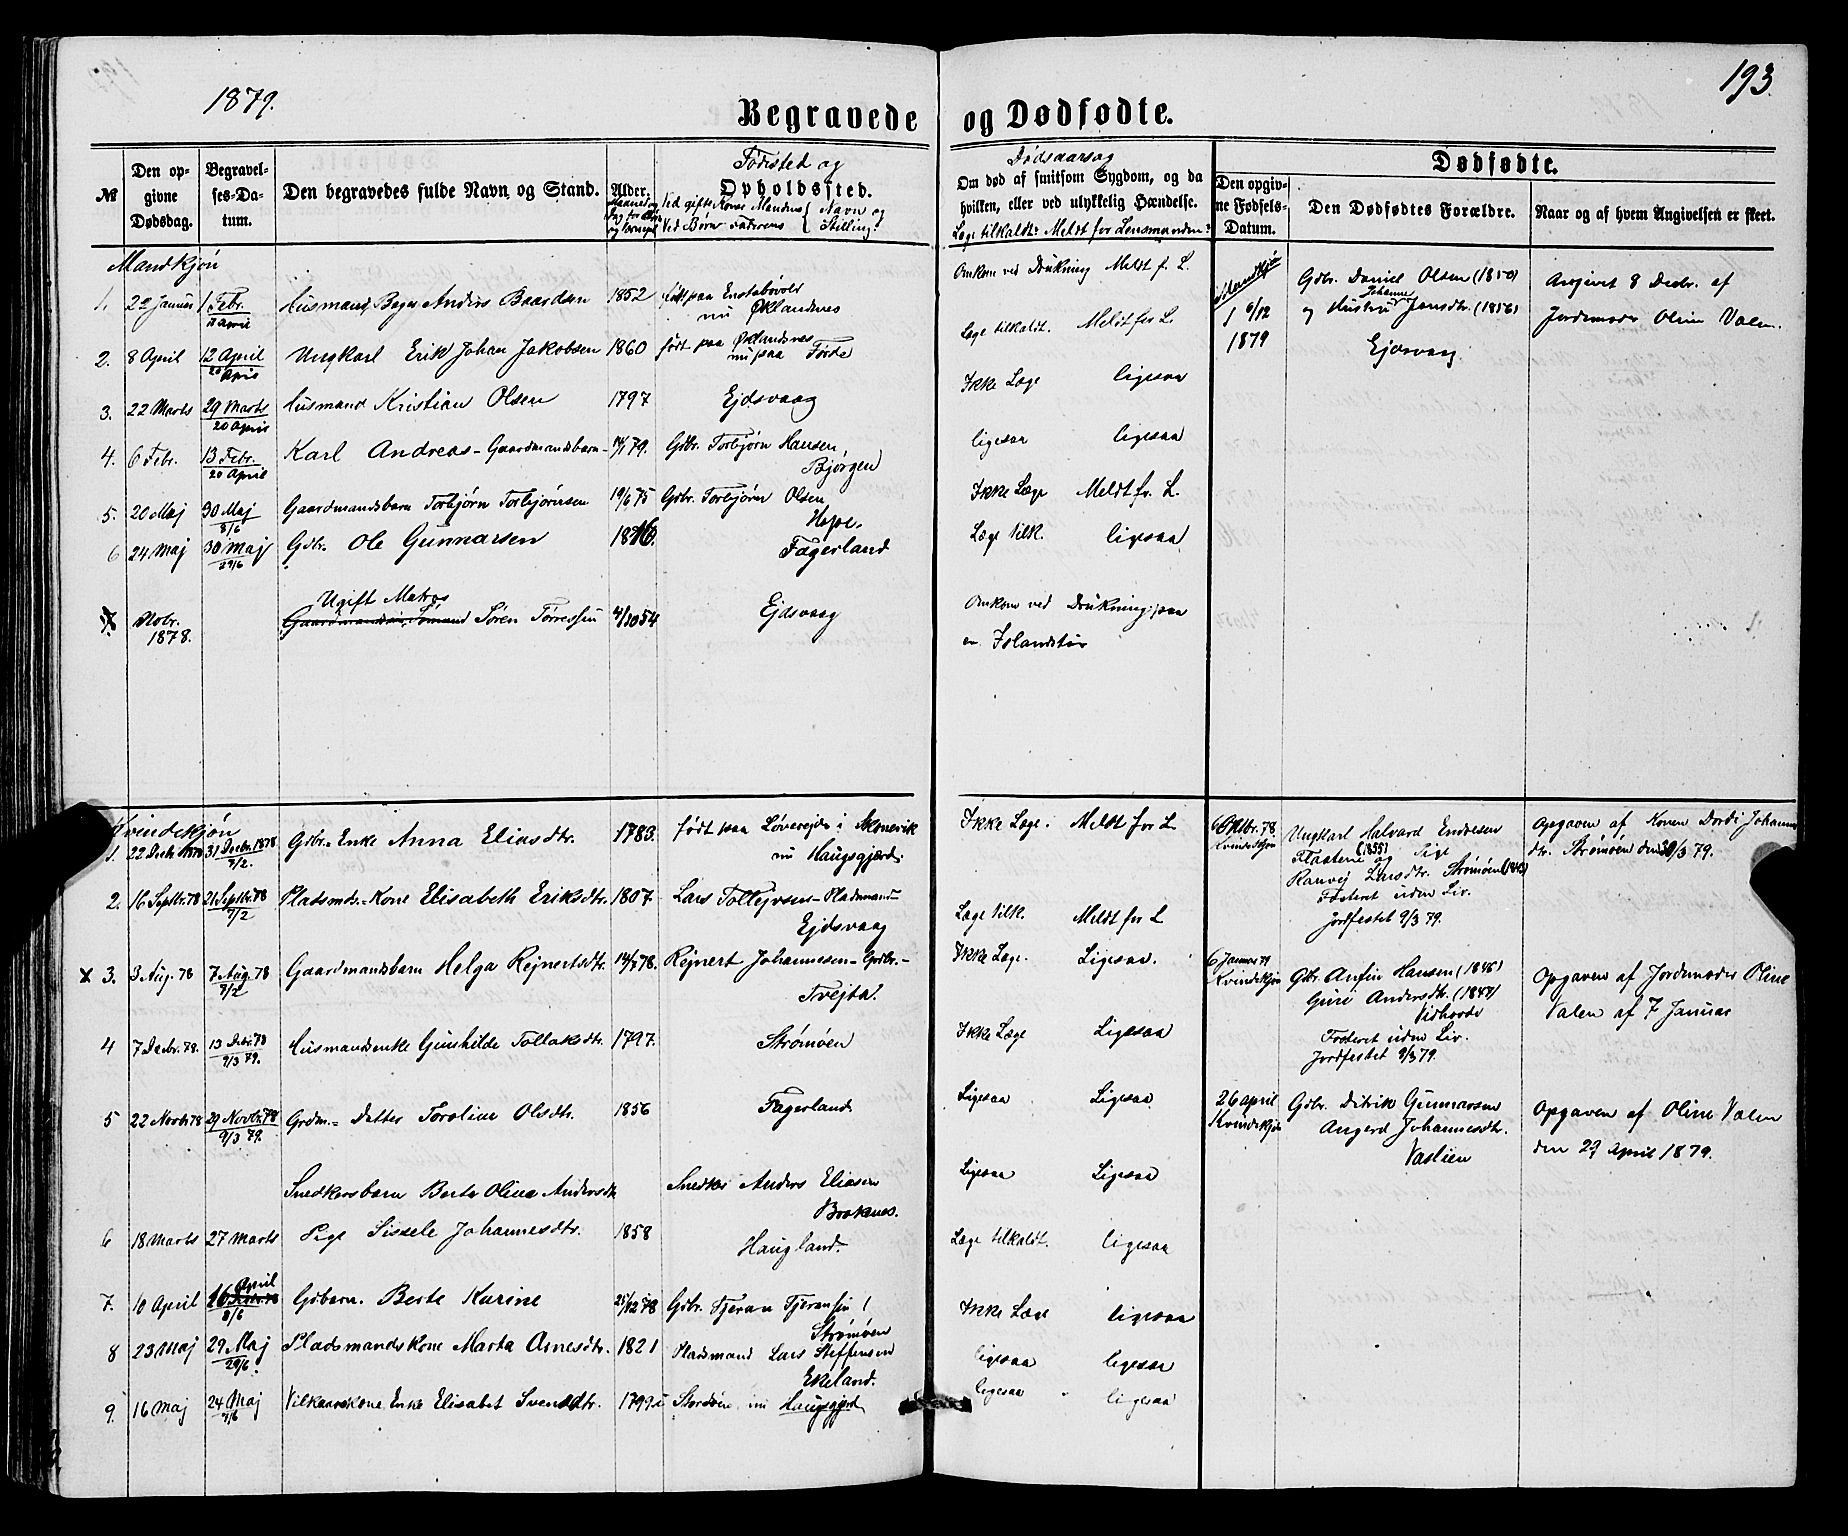 1879.
193.
Begravede og Dødfødte.
№
Den opgivne Dødsdag.
Begravelses-Datum.
Den begravedes fulde Navn og Stand.
Alder.
Fødested og
Opholdssted.
Ved gifte Koner Mandens { Navn og
Ved Børn Faderens { Stilling.
Dødsaarsag
Om død af smitsom Sygdom, og da
hvilken, eller ved ulykkelig Hændelse.
Læge tilkaldt? Meldt for Lensmanden?
Dødfødte.
Den opgivne Fødsels-Datum.
Den Dødfødtes Forældre.
Naar og af hvem Angivelsen er skeet.
Mandkjøn
1. 22 Januar 1 Febr. Husmand Anders Baardsen 1852 født paa
nu Øklandnes
Omkom ved Drukning Meldt f. L.
2. 8 April 12 April 20 April Ungkarl Erik Johan Jakobsen 1860 født paa Øklandnes
nu paa Førde
Læge tilkaldt. Meldt for L.
3. 22 Marts 29 Marts 20 April Husmand Kristian Olsen 1797 Ejdsvaag
Ikke Læge ligesaa
4. 6 Febr. 13 Febr. 20 April Karl Andreas - Gaardmandsbarn - 14/1 79. Gdbr. Torbjørn Hansen,
Bjørgen
ligesaa ligesaa
5. 20 Maj 30 Maj 8/6 Gaardmandsbarn Torbjørn Torbjørnsen 19/6 75 Gdbr. Torbjørn Olsen
Hope.
Ikke Læge Meldt fr. L.
6 24 Maj 30 Maj 29/6 Gdbr. Ole Gunnarsen 1816. Fagerland
Læge tilk. ligesaa
7. Nobr. 1878. Ugift Matros
Søren Tørressen 4/10 54 Ejdsvaag
Omkom ved Drukning paa
en Islandstur
1 6/12 1879
Gdbr. Daniel Olsen (1850)
og Hustru Johanne Jansdtr. (1856)
Ejdsvaag.
Angivet 8 Decbr. af
Jordemoder Oline Valen.
Kvindekjøn
1. 22 Decbr 1878 31 Decbr. 1878 9/2. Gdbr. Enke Anna Eliasdtr. 1783. født paa i Skonevik
nu Haugsgjærd.
Ikke Læge. Meldt for L.
2. 16 Septbr. 78 21 Septbr. 78 9/2 Pladsmds. Kone Elisabeth Eriksdtr. 1807. Lars Tollejvsen - Pladsmand -
Ejdsvaag
Læge tilk. Meldt for L
x 3. 3 Aug. 78 7 Aug. 78 9/2 Gaardmandsbarn Helga Rejnertsdtr. 14/7 78. Rejnert Johannesen - Gdbr. -
Tvejta.
Ikke Læge. Ligesaa.
4 7 Decbr. 78. 13 Decbr. 78 9/3 79. Husmandsenke Gunhilde Tollaksdtr. 1797. Strømøen
Ikke Læge Ligesaa
5 22 Novbr 78 29 Novbr. 78 9/3 79. Grdm. = Datter Toroline Olsdtr. 1856 Fagerland
Ligesaa Ligesaa
Snedkersbarn Berte Olina Andersdtr Snedker Anders Eliasen
Broknes.
Ligesaa Ligesaa
6 18 Marts 27 Marts Pige Sissele Johannesdtr. 1858 Haugland.
Læge tilkaldt. ligesaa
7. 10 April 16 April 8/6 Gdbarn. Berte Karine 25/12 78 Gdbr. Tjeran Tjeransen
Strømøen
Ikke Læge ligesaa
8 23 Maj 29 Maj 29/6. Pladsmandskone Marta Arnesdtr. 1821 Pladsmand Lars Steffensen
Ekeland.
ligesaa ligesaa
9. 16 Maj 24 Maj Vilkaarskone, Enke Elisabet Svendsdtr. 1799 Stordøen nu Haugsgjærd
ligesaa ligesaa
6 Oktbr. 78. Kvindekjøn
Ungkarl Halvard Endresen
(1855) og Pige
Ranvej Larsdtr. Strømøen
Fosteret uden Liv.
Jordfestet 9/3 79.
Opgaven af Konen Dordi Johannes
dtr. Strømøen den 30/3 79.
6 Januar 79 Kvindekjøn
Gdbr. Anfin Hansen (1846)
Guri Andersdtr. (1847)
Vidhovde
Fosteret uden Liv.
Jordfestet 9/3 79.
Opgaven af Jordemoder Oline
Valen af 7 Januar
26 april Kvindekjøn
Gdbr. Ditrik Gunnarsen
Angerd Johannesdtr.
Vaslien
Opgaven af Oline Valen
den 29 April 1879.